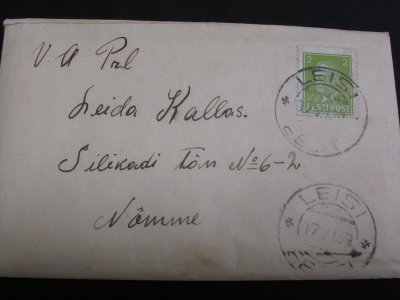 V. A. Prl
Leida Kallas.
Silikadi tän № 6-2
Nõmme
2 2
EESTI POST
LEISI
EESTI
LEISI
17 VI 39